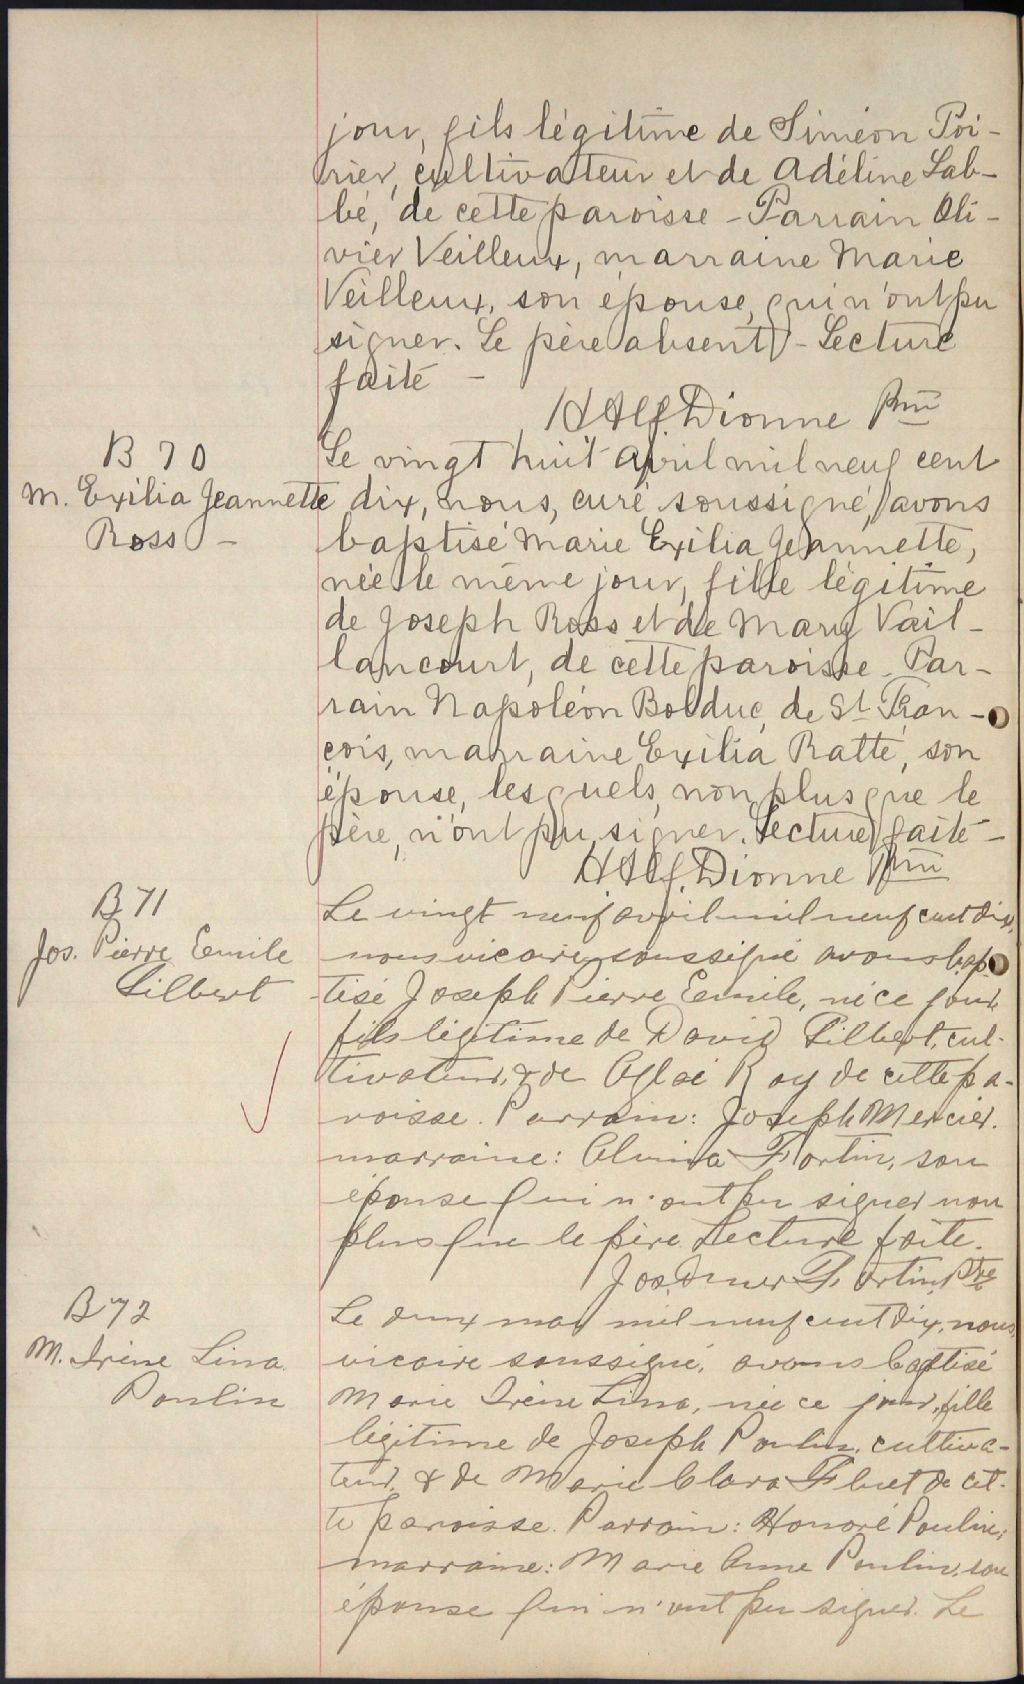 jour, fils légitime de Siméon Poi-
rier, cultivateur et de Adéline Lab-
bé, de cette paroisse - Parrain Oli-
vier Veilleux, marraine Marie
Veilleux, son épouse, qui n'ont pu
signer. Le père absent - Lecture
faite -
H Alf. Dionne Ptre
B 70
M. Exilia Jeannette
Ross -
Le vingt huit avril mil neuf cent
dix, nous, curé soussigné, avons
baptisé Marie Exilia Jeannette,
née le même jour, fille légitime
de Joseph Ross et de Mary Vail-
lancourt, de cette paroisse. Par-
rain Napoléon Bolduc, de St Fran-
çois, marraine Exilia Ratté, son
épouse, lesquels, non plus que le
père, n'ont pu signer. Lecture faite -
H Alf. Dionne Ptre
B 71
Jos. Pierre Emile
Gilbert
Le vingt neuf avril mil neuf cent dix,
nous vicaire soussigné avons bap
tisé Joseph Pierre Emile, né ce jour
fils légitime de David Gilbert, cul-
tivateur, & de Aglaé Roy de cette pa-
roisse. Parrain: Joseph Mercier.
marraine: Alvina Fortin, son
épouse qui n'ont pu signer non
plus que le père. Lecture faite.
Jos. Omer Fortin, Ptre
B 72
M. Irène Lina
Poulin
Le deux mai mil neuf cent dix, nous,
vicaire soussigné, avons baptisé
Marie Irène Lina, née ce jour, fille
légitime de Joseph Poulin, cultiva-
teur, & de Marie Clara Fluet de cet-
te paroisse. Parrain: Honoré Poulin;
marraine: Marie Anne Poulin, son
épouse qui n'ont pu signer. Le